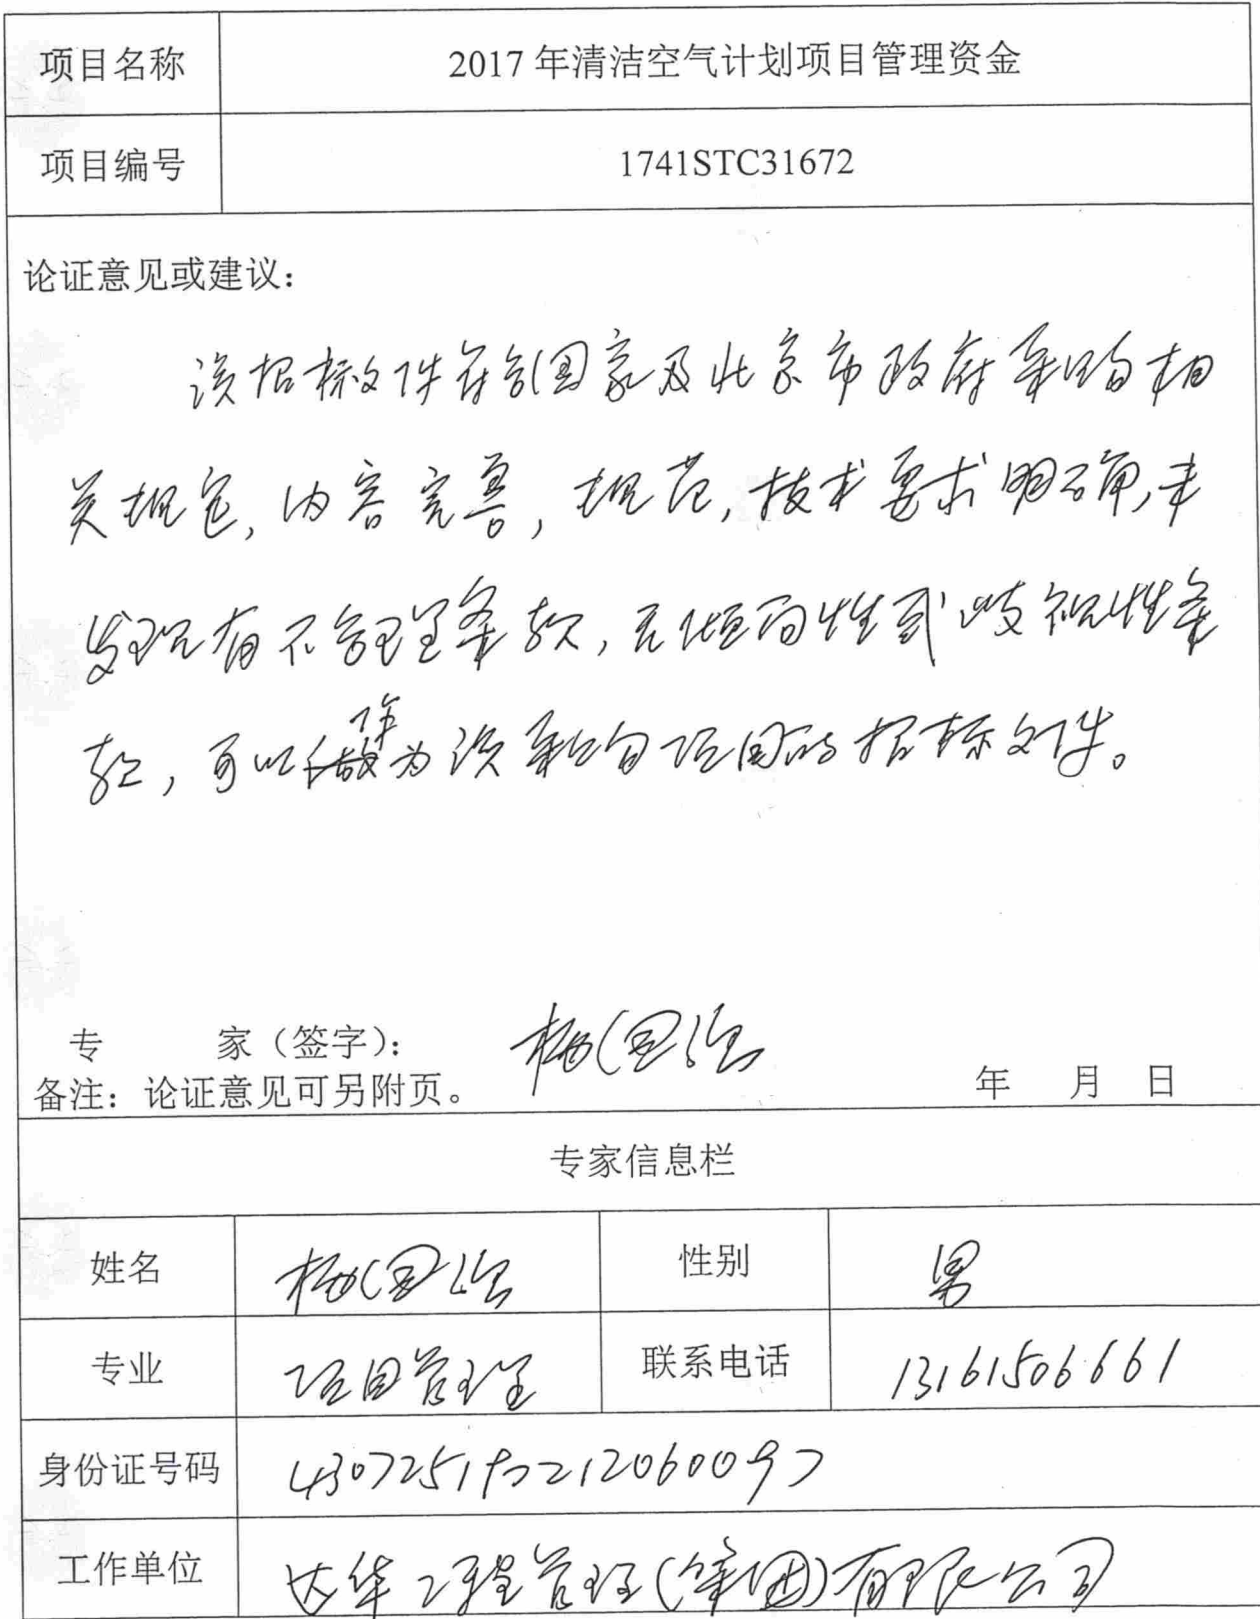 项目名称 2017 年清洁空气计划项目管理资金
项目编号 1741STC31672
论证意见或建议：
该招标文件符合国家及北京市政府采购相
关规定，内容完善，规范，技术要求明确，未
发现有不合理条款，无倾向性或歧视性条
款，可以作为该采购项目的招标文件。
专 家（签字）： 杨国强
备注：论证意见可另附页。 年 月 日
专家信息栏
姓名 杨国强 性别 男
专业 项目管理 联系电话 13161506661
身份证号码
工作单位 达华工程管理(集团)有限公司